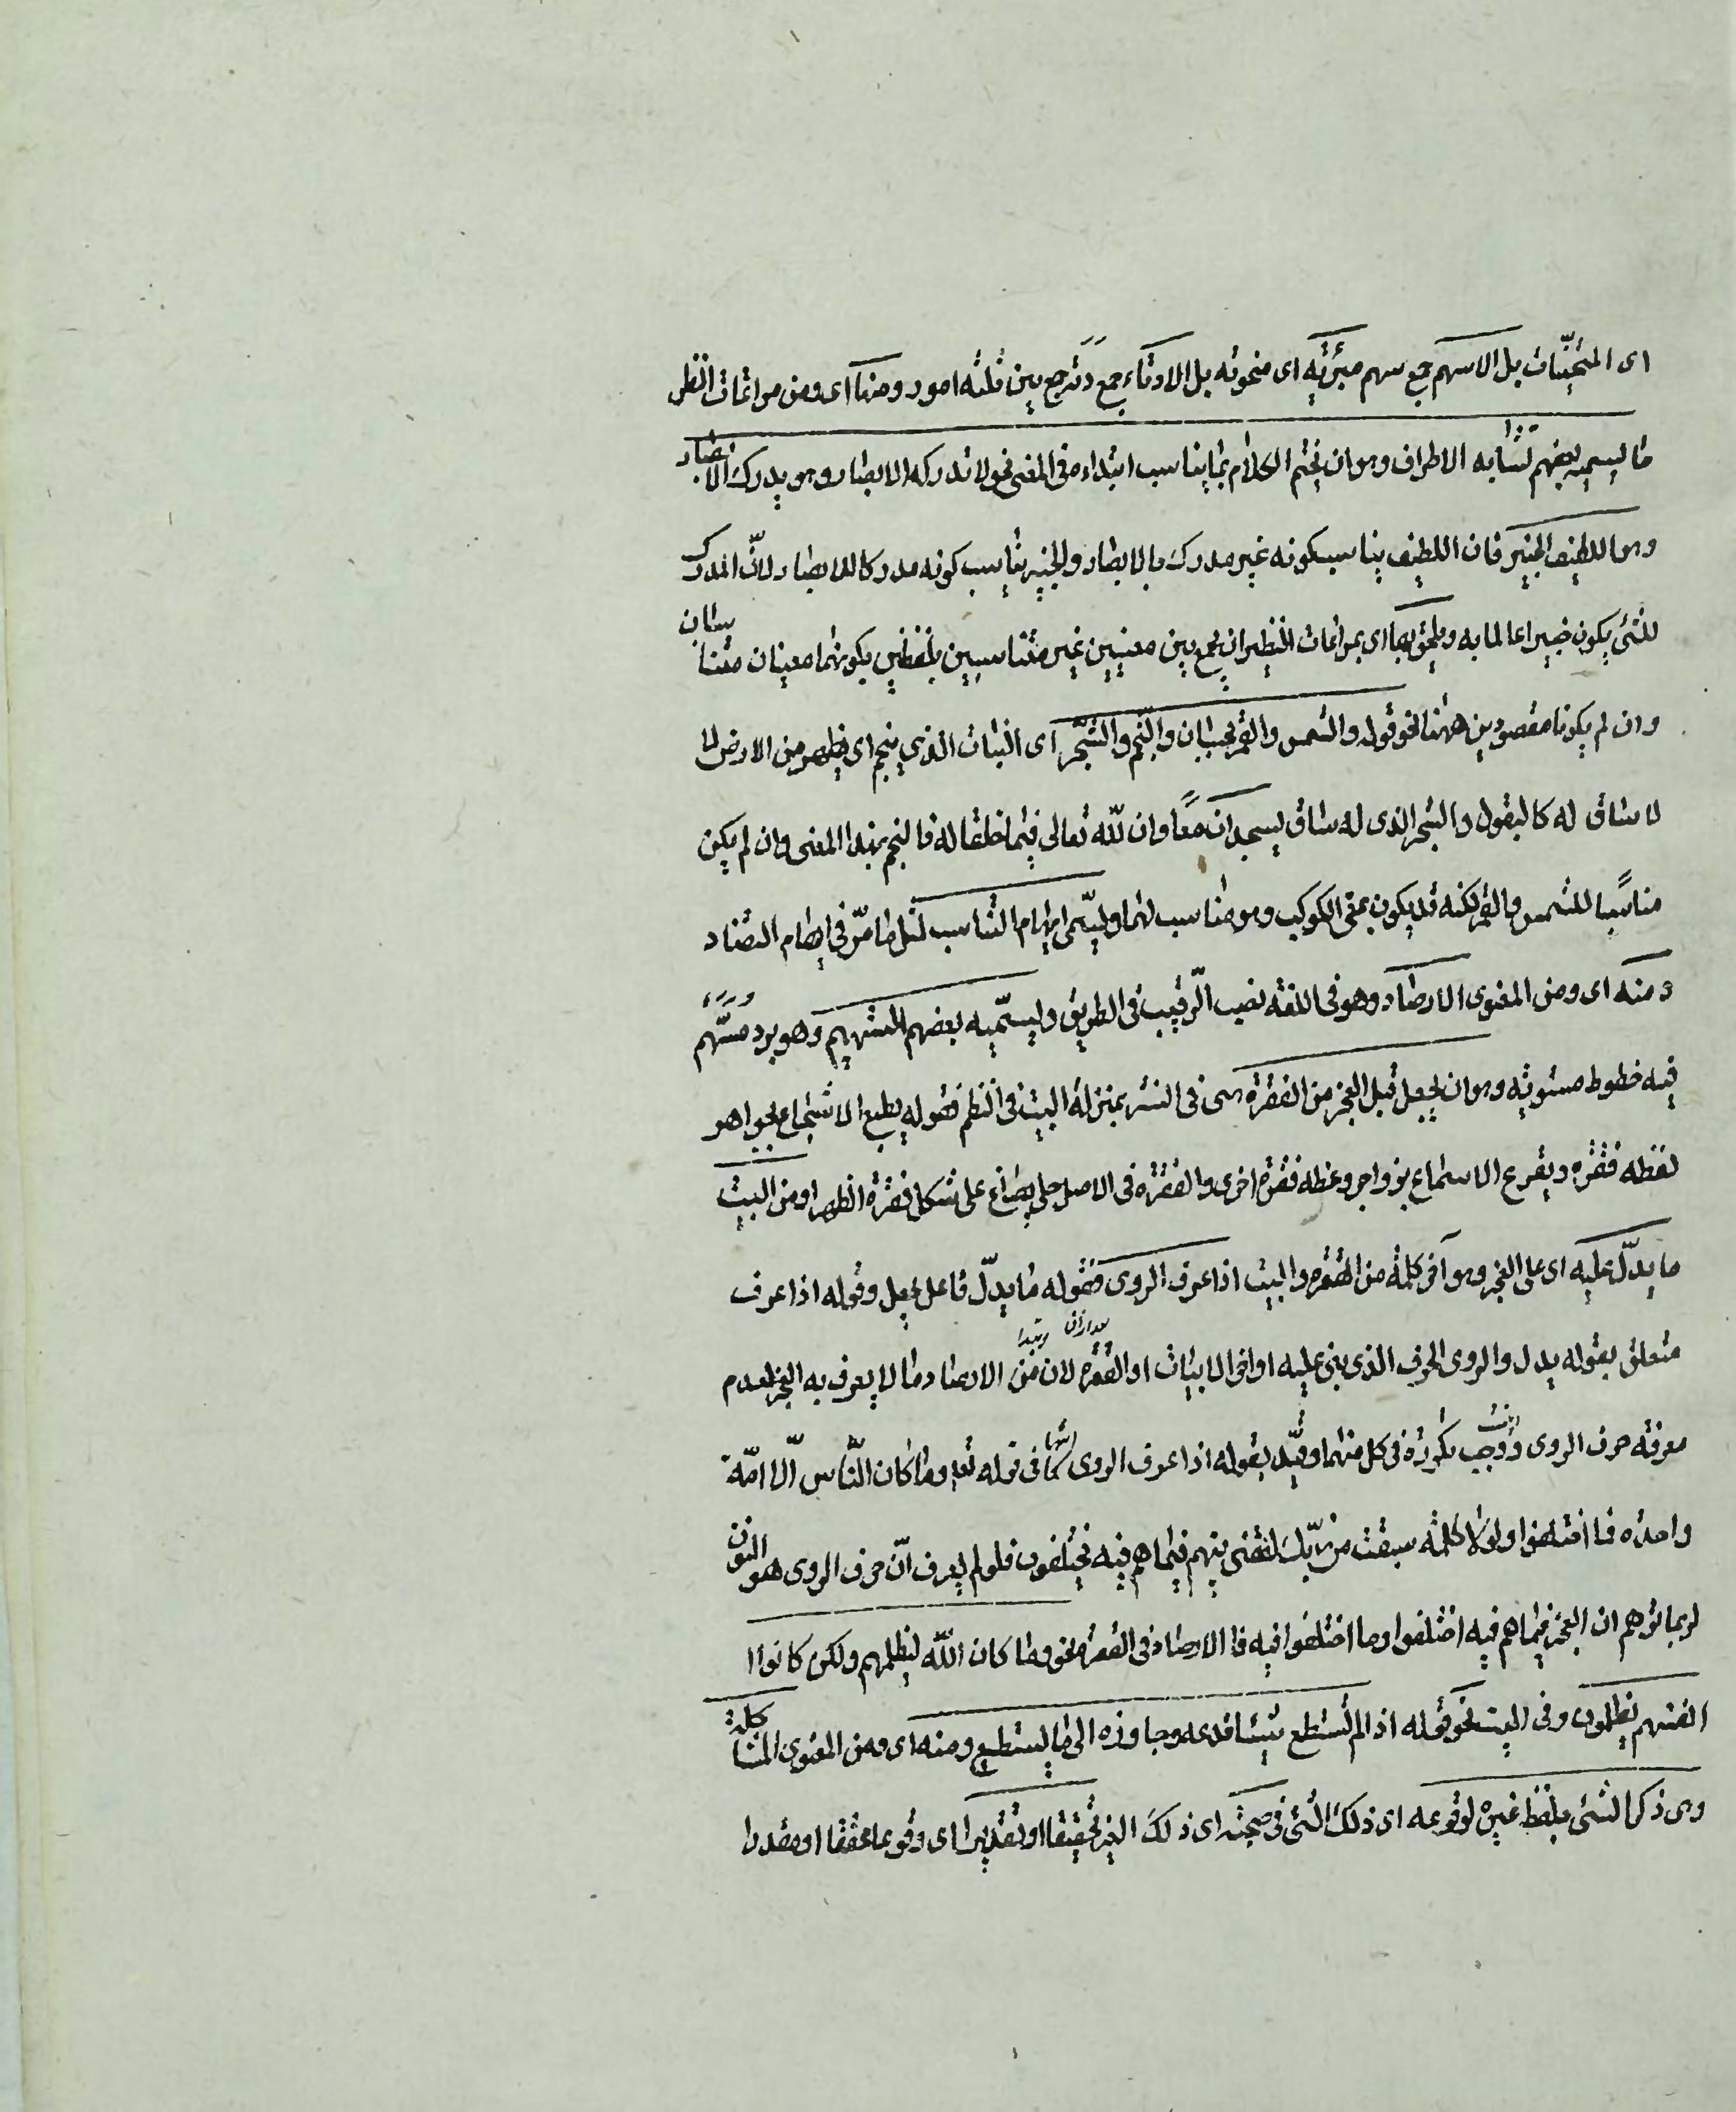 اى المنحنيات بل الاسهم جمع سهم مبرّية اى منحوتة بل الاوتار جمع وتر جمع بين ثلثة امور ومنها اى ومن مراعات النظير
ما يسميه بعضهم تشابه الاطراف وهو ان يختم الكلام بما يناسب ابتداءه فى المعنى نحو لا تدركه الابصار وهو يدرك الابصار
وهو اللطيف الخبير فان اللطيف يناسب كونه غير مدرك بالابصار والخبير يناسب كونه مدركا للابصار لانّ المدرك
للشئ يكون خبيرا عالما به ويلحق بها اى بمراعات النظير ان يجمع بين معنيين غير متناسبين بلفظين يكون لهما معنيان متناسبان
وان لم يكونا مقصودين ههنا نحو قوله والشمس والقمر بحسبان والنّجم والشّجر اى النبات الذى ينجم اى يظهر من الارض لا
لا ساق له كالبقول والشجر الذى له ساق يسجدان معًا وان لله تعالى فيما خلقا له فالنجم بهذا المعنى وان لم يكن
مناسبًا للشمس والقمر لكنه قد يكون بمعنى الكوكب وهو مناسب لهما ويسمّى ايهام التناسب لمثل ما مرّ فى ايهام التضاد
ومنه اى ومن المعنوى الارصاد وهو فى اللغة نصب الرّقيب فى الطريق ويسمّيه بعضهم التسهيم وهو برد مسهّم
فيه خطوط مستوية وهو ان يجعل قبل العجز من الفقرة هى فى النثر بمنزلة البيت فى النظم فقوله يطبع الاسجاع بجواهر
لفظه فقرة ويقرع الاسماع بزواجر وعظه فقرة اخرى والفقرة فى الاصل حلى يصاغ على شكل فقرة الظهر او من البيت
ما يدلّ عليه اى على العجز وهو آخر كلمة من الفقرة والبيت اذا عرف الروى فقوله ما يدلّ فاعل يجعل وقوله اذا عرف
متعلق بقوله يدل والروى الحرف الذى بنى عليه اواخر الابيات او الفقرة لان من الارصاد ما لا يعرف به العجز لعدم
معرفته حرف الروى ووجب تكرره فى كل منهما وقيّد بقوله اذا عرف الروى كما فى قوله تعا وما كان النّاس الّا امّة
واحدة فاختلفوا ولولا كلمة سبقت من ربّك لقضى بينهم فيما هم فيه يختلفون فلو لم يعرف انّ حرف الروى هو النون
لربما توهم ان العجز فيما هم فيه اختلفوا وما اختلفوا فيه فالارصاد فى الفقرة نحو وما كان الله ليظلمهم ولكن كانوا
انفسهم يظلمون وفى البيت نحو قوله اذا لم تستطع شيئا فدعه وجاوزه الى ما يستطيع ومنه اى ومن المعنوى المشاكلة
وهى ذكر الشئ بلفظ غيره لوقوعه اى ذلك الشئ فى صحبته اى ذلك الغير تحقيقا او تقديرا اى وقوعا محققا او مقدرا